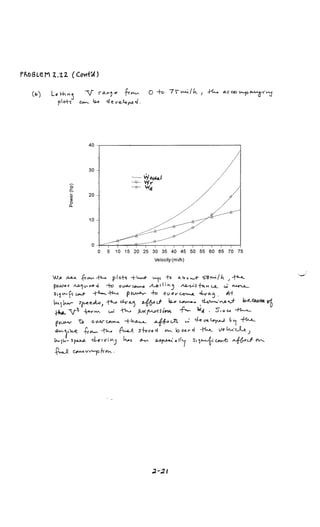 PROBLEM 2.22 (Cont'd)
(b) Letting V range from 0 to 75 mi/h, the accompanying
plots can be developed.
40
30
20
10
0
Power (hp)
Wtotal
Wr
Wd
0 5 10 15 20 25 30 35 40 45 50 55 60 65 70 75
Velocity (mi/h)
We see from the plots that up to about 58 mi/h, the
power required to overcome rolling resistance is more
significant than the power to overcome drag. At
higher speeds, the drag effect becomes dominant because of
the V3 term in the expression for Wd. Since the
power to overcome these effects is developed by the
engine from the fuel stored on board the vehicle,
high-speed driving has an especially significant effect on
fuel consumption.
2-21